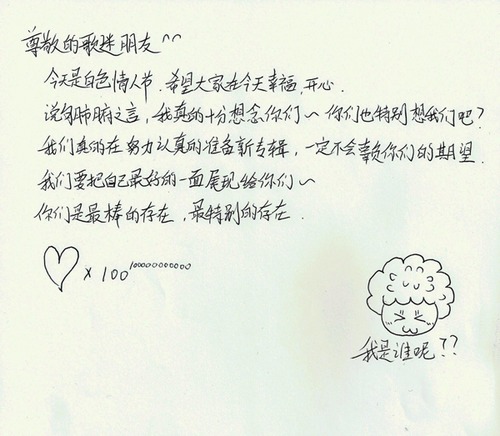 尊敬的歌迷朋友^^
今天是白色情人节.希望大家在今天幸福,开心.
说句肺腑之言,我真的十分想念你们~你们也特别想我们吧?
我们真的在努力认真的准备新专辑,一定不会辜负你们的期望.
我们要把自己最好的一面展现给你们~
你们是最棒的存在,最特别的存在.
♡×100¹⁰⁰⁰⁰⁰⁰⁰⁰⁰⁰⁰
我是谁呢??